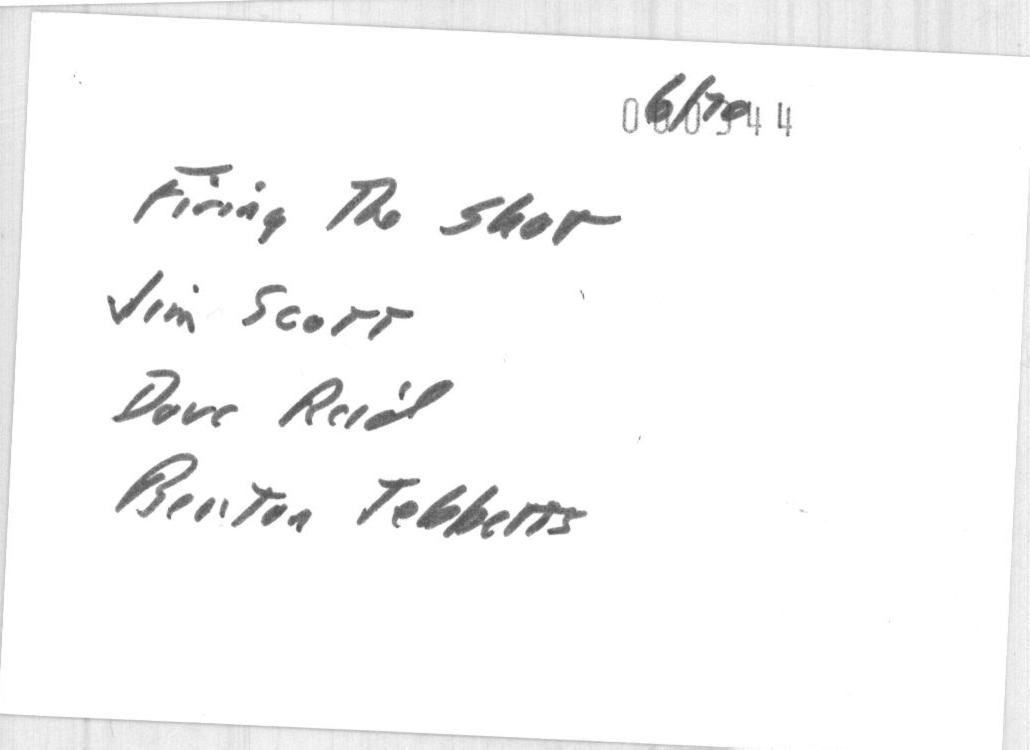 6/70
Firing The Shot
Jim Scott
Dave Reid
Benton Tebbetts